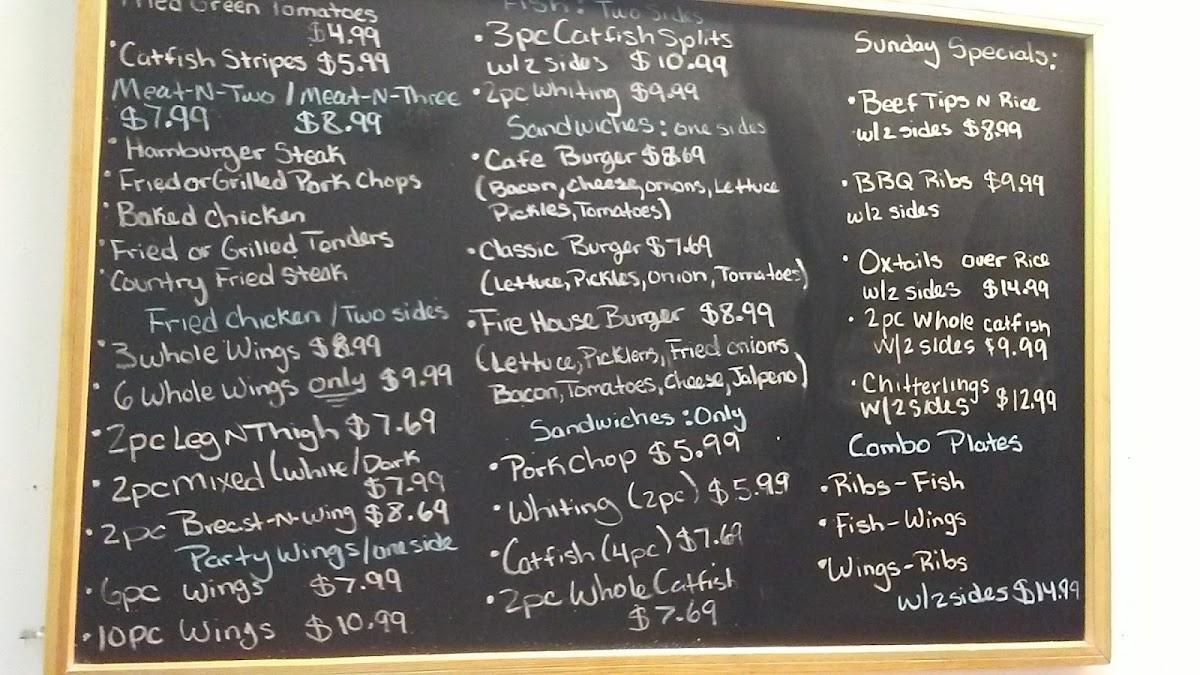 Fried Green Tomatoes
$4.99
• Catfish Stripes $5.99
Meat-N-Two / Meat-N-Three
$7.99 $8.99
• Hamburger Steak
• Fried or Grilled Pork Chops
• Baked Chicken
• Fried or Grilled Tenders
• Country Fried Steak
Fried Chicken / Two sides
• 3 whole Wings $8.99
• 6 Whole Wings only $9.99
• 2pc Leg N Thigh $7.69
• 2pc Mixed (White/Dark
$7.99
• 2pc Breast-N-Wing $8.69
Party Wings/one side
• 6pc Wings $7.99
• 10pc Wings $10.99
Fish: Two Sides
• 3pc Catfish Splits
w/2 sides $10.99
• 2pc Whiting $9.99
Sandwiches: one sides
• Cafe Burger $8.69
(Bacon, cheese, onions, Lettuce
Pickles, Tomatoes)
• Classic Burger $7.69
(Lettuce, Pickles, Onion, Tomatoes)
• Fire House Burger $8.99
(Lettuce, Picklers, Fried onions
Bacon, Tomatoes, Cheese, Jalpeno)
Sandwiches: Only
• Pork Chop $5.99
• Whiting (2pc) $5.99
• Catfish (4pc) $7.69
• 2pc Whole Catfish
$7.69
Sunday Specials:
• Beef Tips N Rice
w/2 sides $8.99
• BBQ Ribs $9.99
w/2 sides
• Oxtails over Rice
w/2 sides $14.99
• 2pc Whole catfish
w/2 sides $9.99
• Chitterlings
w/2 sides $12.99
Combo Plates
• Ribs-Fish
• Fish-Wings
• Wings-Ribs
w/2 sides $14.99